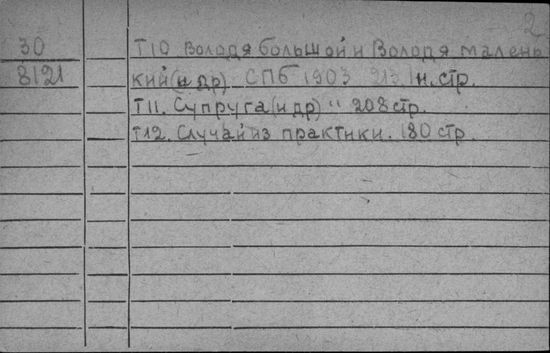 2
30 Т10 Володя большой и Володя малень
8121 кий (и др) СПБ 1903 213 1 н. стр.
Т11. Супруга (и др) " 208 стр.
Т12. Случай из практики. 180 стр.